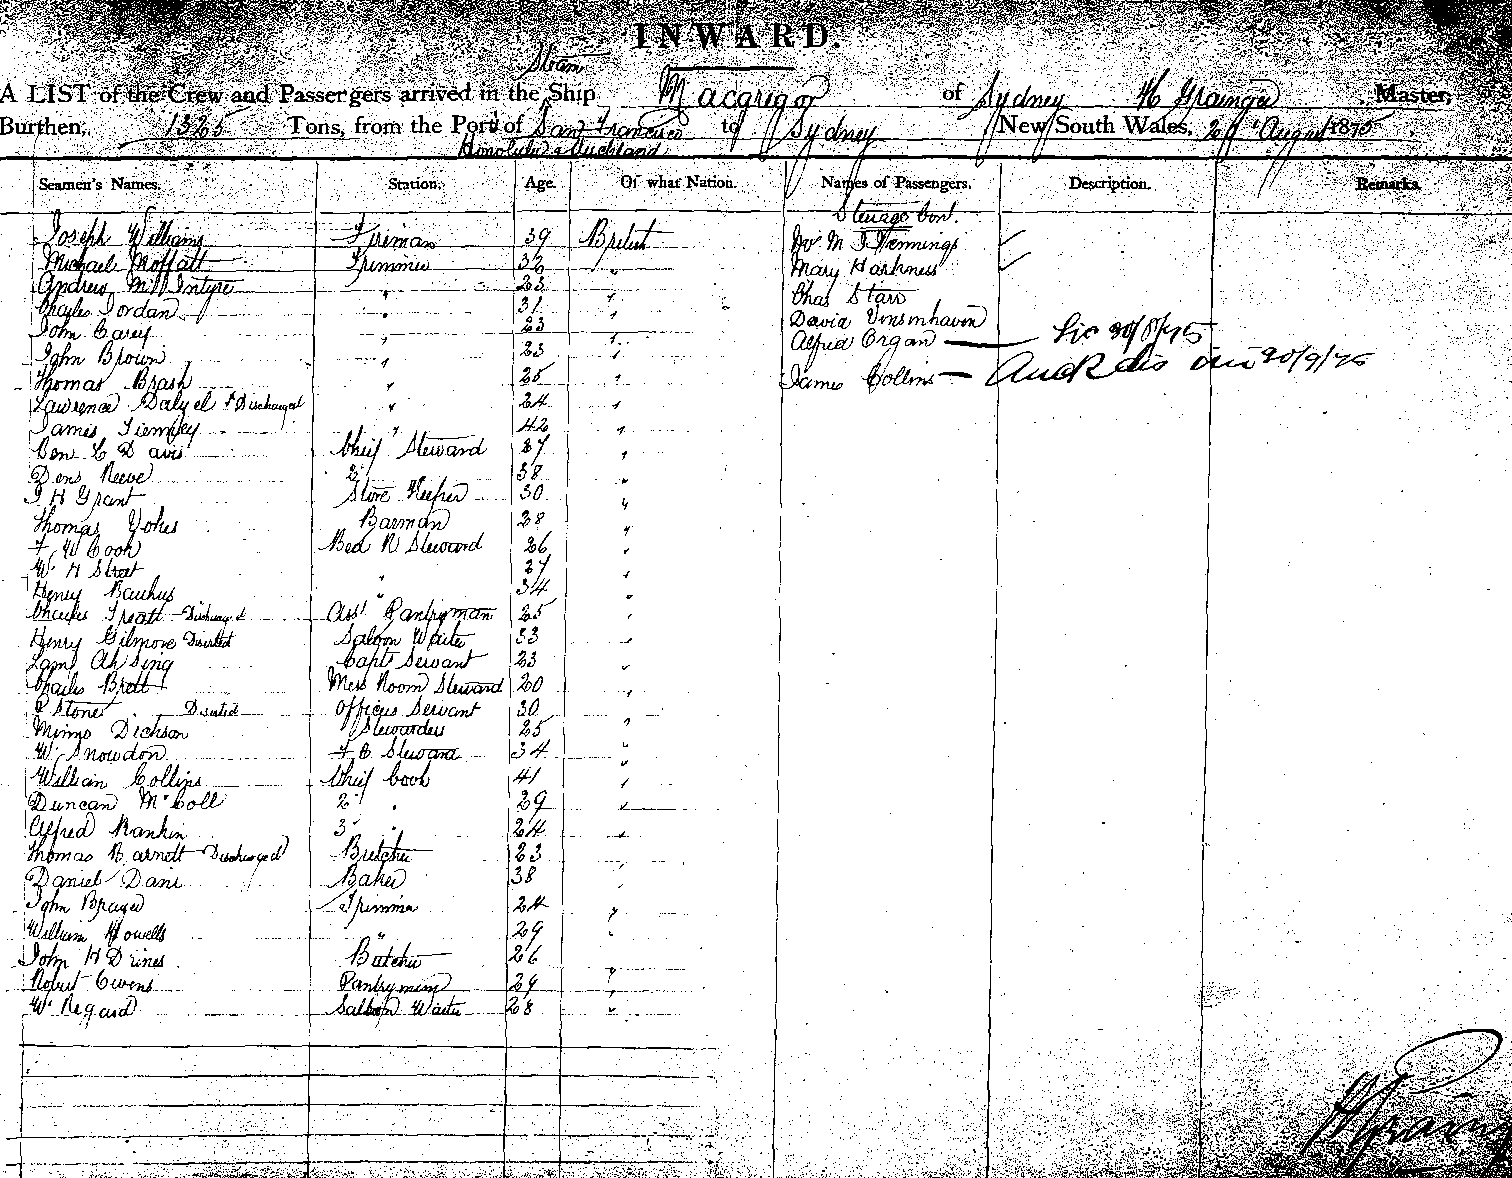 INWARD.
Steam
A LIST of the Crew and Passengers arrived in the Ship Macgregor of Sydney H Grainger Master,
Burthen, 1325 Tons, from the Port of San Francisco to Sydney New South Wales, 29 August 1875
Honolulu & Auckland
Seamen's Names. Station. Age. Of what Nation. Names of Passengers. Description. Remarks.
Steerage Cont.
Joseph Williams Fireman 39 British Mr M J Jennings
Michael Moffatt Trimmer 32 " Mary Harkness
Andrew McIntyre " 23 " Chas Starr
Charles Jordan " 31 " David
John Carey " 23 " Alfred Organ — 
John Brown " 23 "
Thomas Brash " 25 " James Collins — 20/9/75
Lawrence Dalyel Discharged " 24 "
James Tiernney " 42 "
Ben C Davis Cheif Steward 27 "
Dens Reeve 2 " 38 "
J H Grant Store Keeper 30 "
Thomas Yokes Barman 28 "
F W Cook Bed R Steward 26 "
W H Street " 27 "
Henry Bauhus " 34 "
Charles Treatt Discharged Asst Pantryman 25 "
Henry Gilmore Diserted Saloon Waiter 33 "
Lam Ah Sing Capts Servant 23 "
Charles Brett Mess Room Steward 20 "
P Stone Diserted Officers Servant 30
Mimo Dickson Stewardess 25 "
W Snowdon F C Steward 34 "
William Collins Cheif Cook 41 "
Duncan McColl 2 " 29 "
Alfred Rankin 3 " 24 "
Thomas Barnett Discharged Butcher 23 "
Daniel Dani Baker 38 "
John Brayer Trimmer 24 "
William Howells " 29 "
John H Drines Butcher 26 "
Robert Owens Pantryman 29 "
W Regard Saloon Waiter 28 "
H Grainger